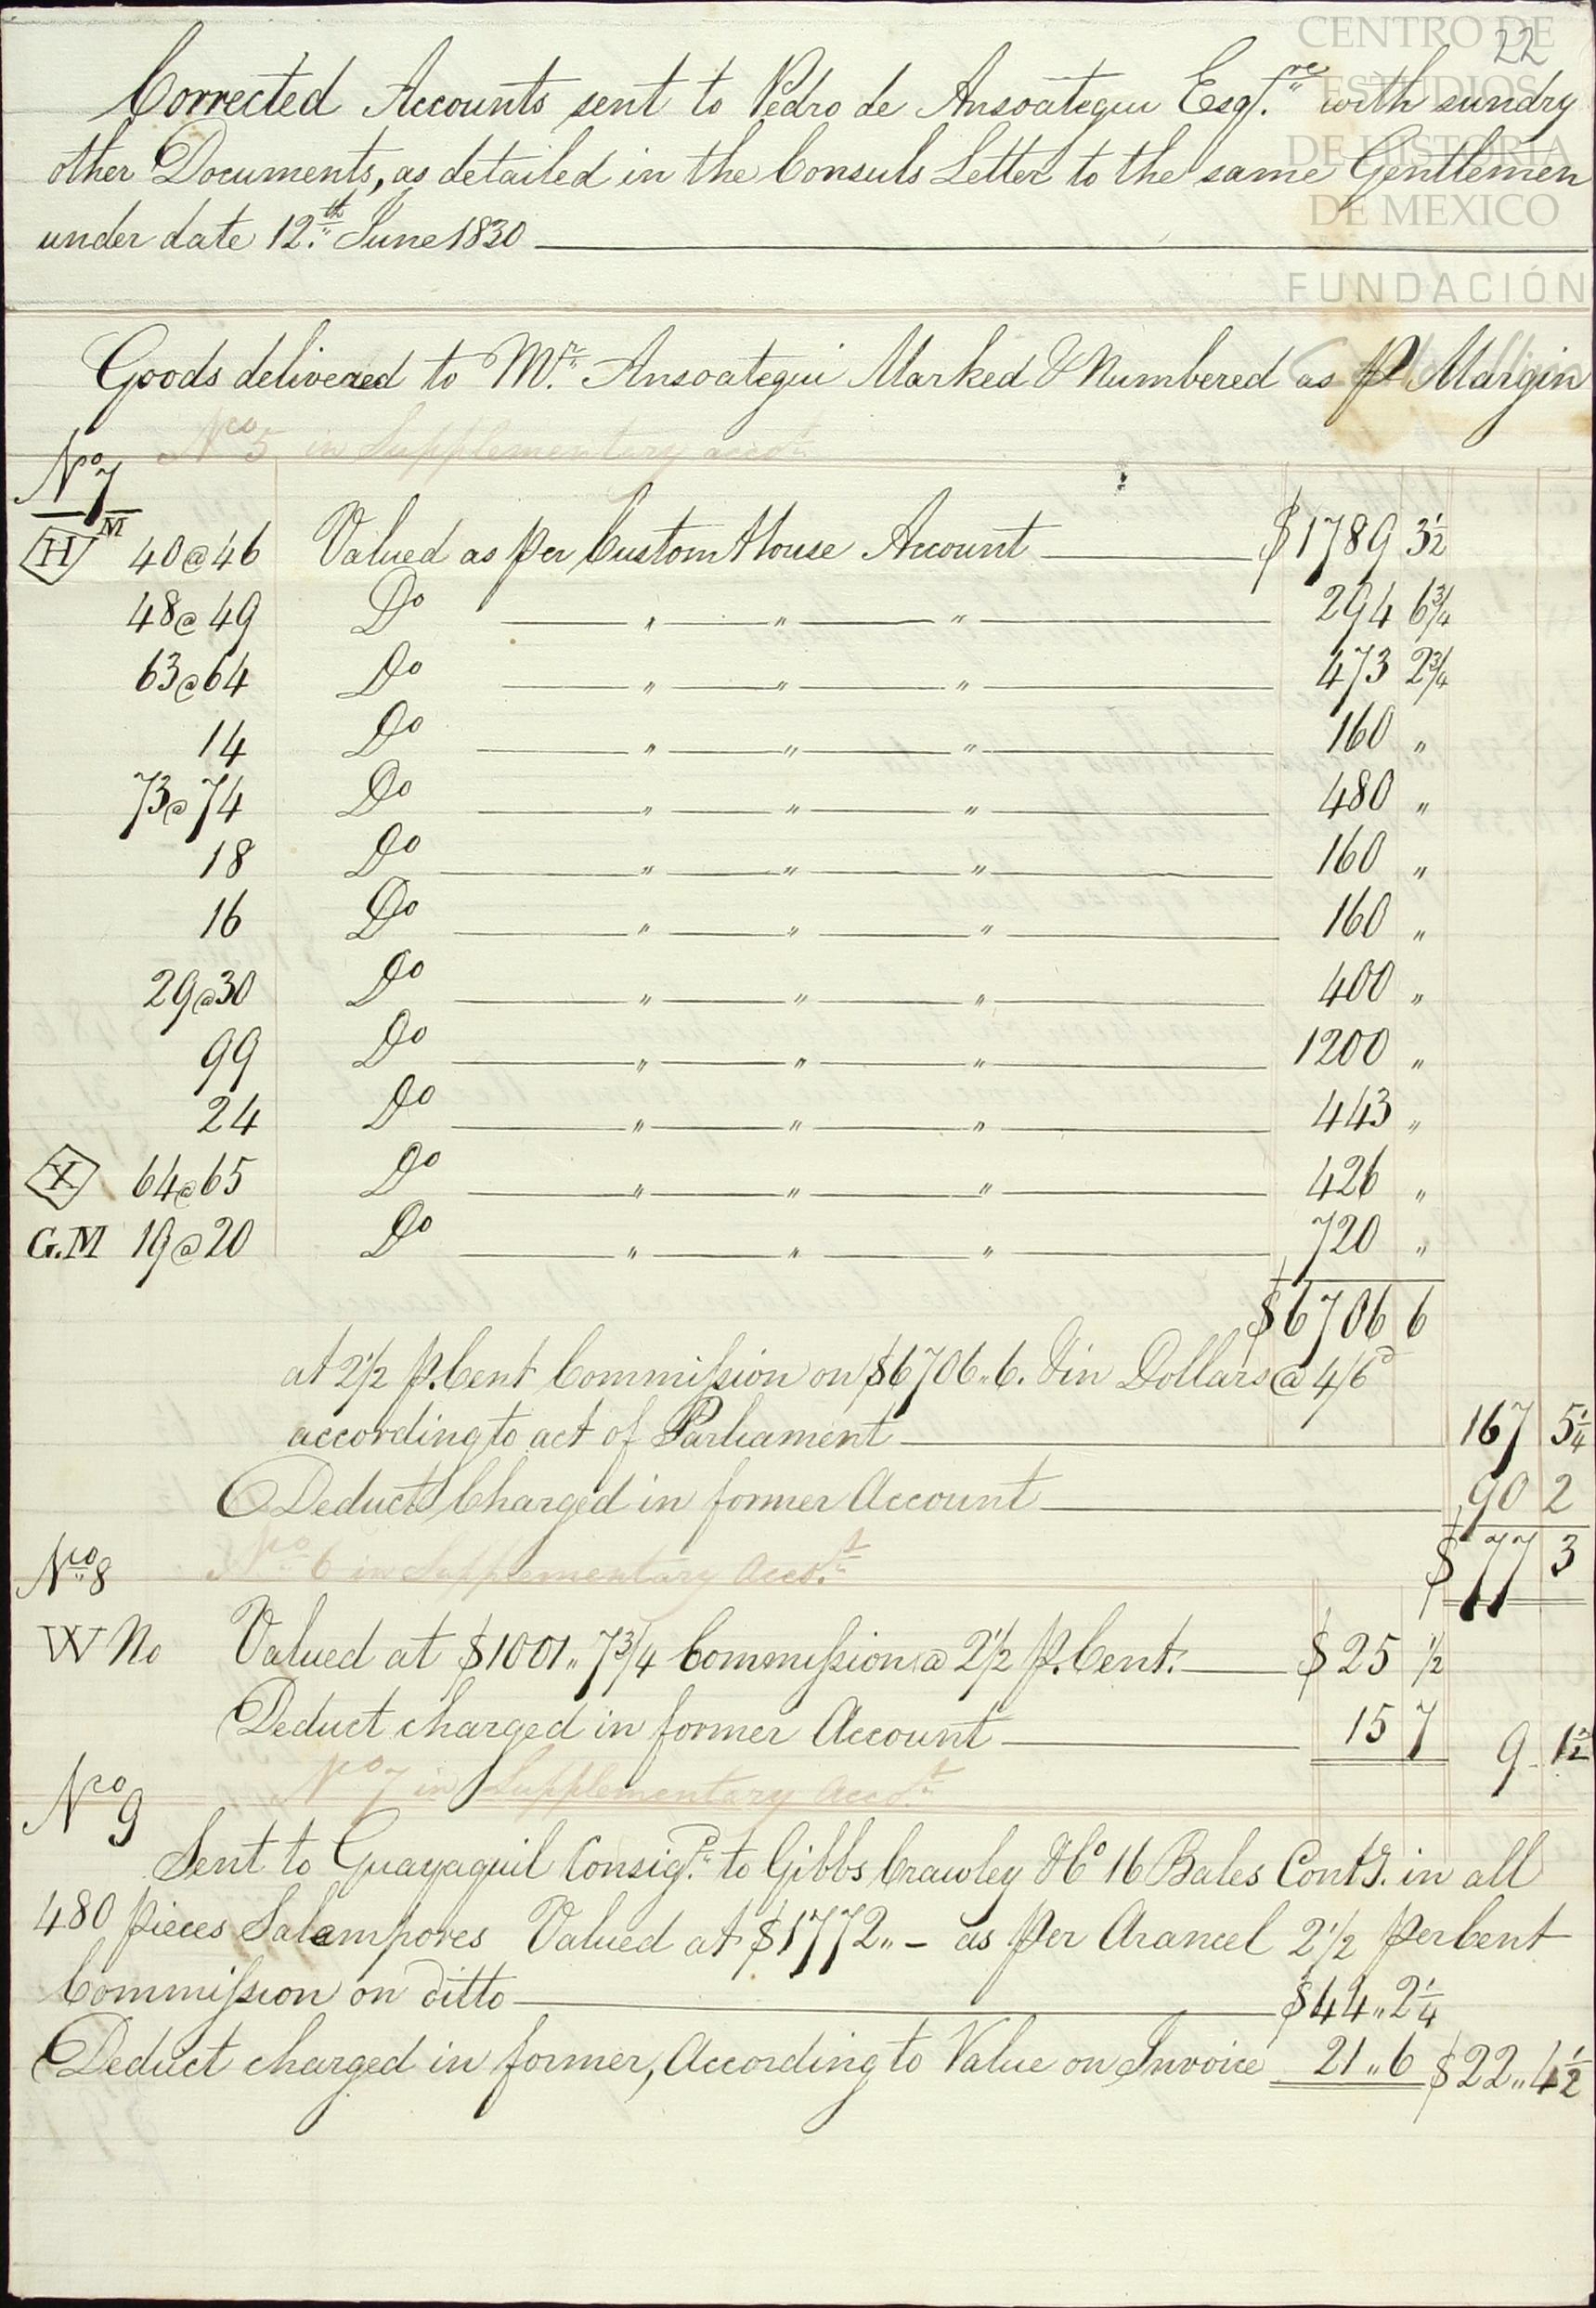 22
CENTRO DE
ESTUDIOS
DE HISTORIA
DE MEXICO
FUNDACIÓN
Corrected Accounts sent to Pedro de Ansoategui Esqr.re with sundry
other Documents, as detailed in the Consuls Letter to the same Gentlemen
under date 12.th June 1830
Goods delivered to Mr. Ansoategui Marked & Numbered as P Margin
No 5 in Supplementary acco.t
No 7
H M 40@46 Valued as per Custom House Account $1789 3½
48@49 Do " " " 294 6¾
63@64 Do " " " 473 2¾
14 Do " " " 160 "
73@74 Do " " " 480 "
18 Do " " " 160 "
16 Do " " " 160 "
29@30 Do " " " 400 "
99 Do " " " 1200 "
24 Do " " " 443 "
X 64@65 Do " " " 426 "
G.M 19@20 Do " " " 720 "
$6706 6
at 2½ P.Cent Commission on $6706.."6. in Dollars @ 4/6d
according to act of Parliament 167 5¼
Deduct Charged in former Account 90 2
$77 3
No. 8 No. 6 in Supplementary Acco.t
W No Valued at $1001.. 7¾ Commission @ 2½ P.Cent. $25 ½
Deduct charged in former Account 15 7 9 1½
No 9 No 7 in Supplementary Acco.t
Sent to Guayaquil Consigd. to Gibbs Crawley & Co 16 Bales Contg. in all
480 pieces Salampores Valued at $1772.. - as Per Arancel 2½ Per Cent
Commission on ditto $44.. 2¼
Deduct charged in former, According to Value on Invoice 21.. 6 $22.. 4½